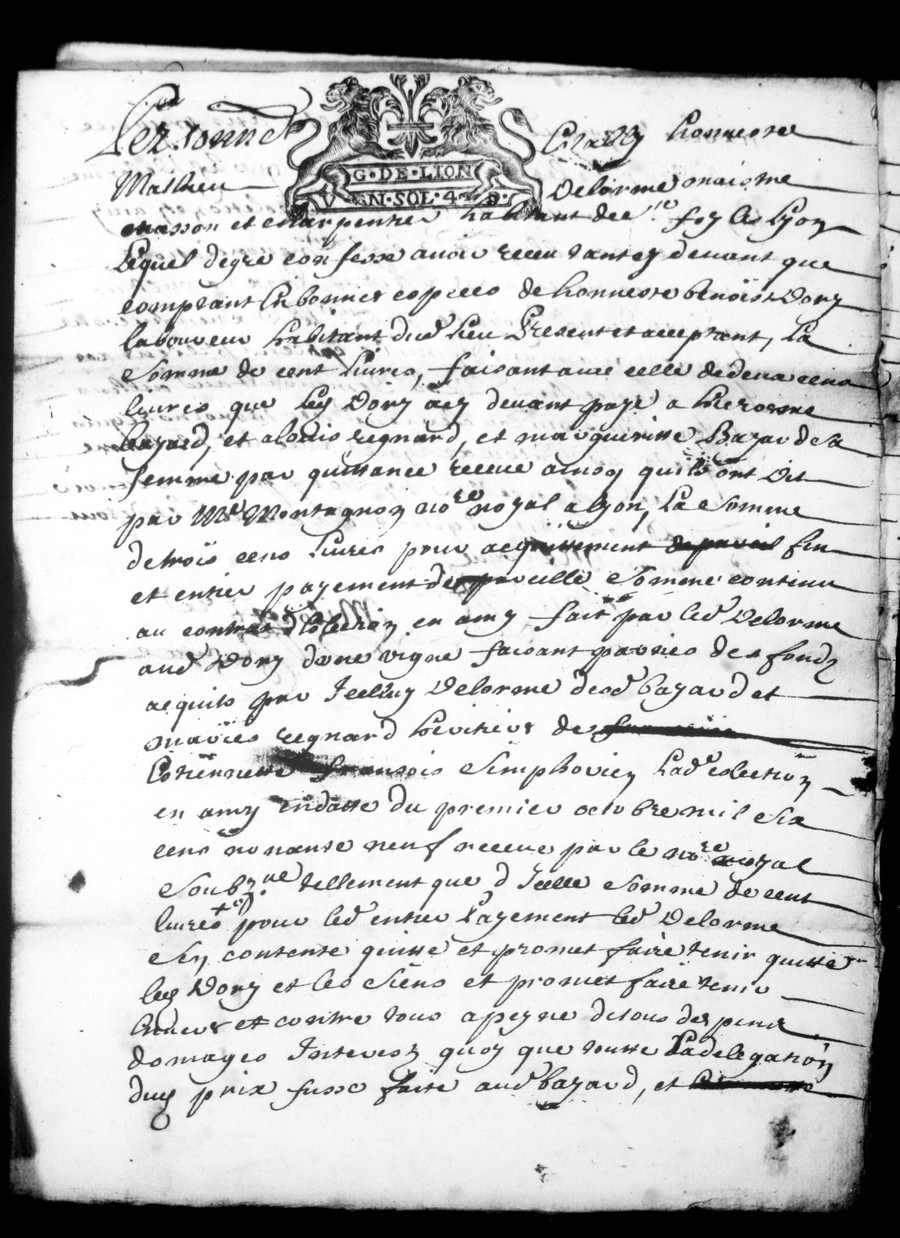 Personnel Estably honneste
G · DE · LION
VN · SOL · 4 · D ·
Mathieu Delorme maistre
masson et charpentier habitant de Ste foy les Lyon
Lequel degre confesse avoir receu tant cy devant que
comptant En bonnes espèces de honneste benoist Dory
laboureur habitant dud Lieu Present et acceptant, La
Somme de cent Livres, faisant avec celle de deux cens
livres que led Dory a cy devant payé a hierosme
bazard, et a louis regnard, et margueritte Bazard sa
femme par quittance receue ainsy quils ont dit
par Me Montagnon nore royal a lyon, La Somme
de trois cens Livres pour acquittement fin
et entier payement de pareille Somme contenu
au contrat en amy fait par led Delorme
aud Dory dune vigne faisant parties des fonds
acquits par Icelluy Delorme desd bazard et
mariés regnard heritiers de
Estiennette françois Simphorien Lad eslection
en amy en datte du premier octobre mil Six
cens nonante neuf receue par le nore royal
Soubzne tellement que d Icelle Somme de cent
livres pour led entier Payement led Delorme
Sen contente quitte et promet faire tenir quitte
led Dory et les Siens et promet faire tenir
Envers et contre tous a peyne de tous despens
domages Interest quoy que toutte La delegation
dud prix fusse faite aud bazard, et